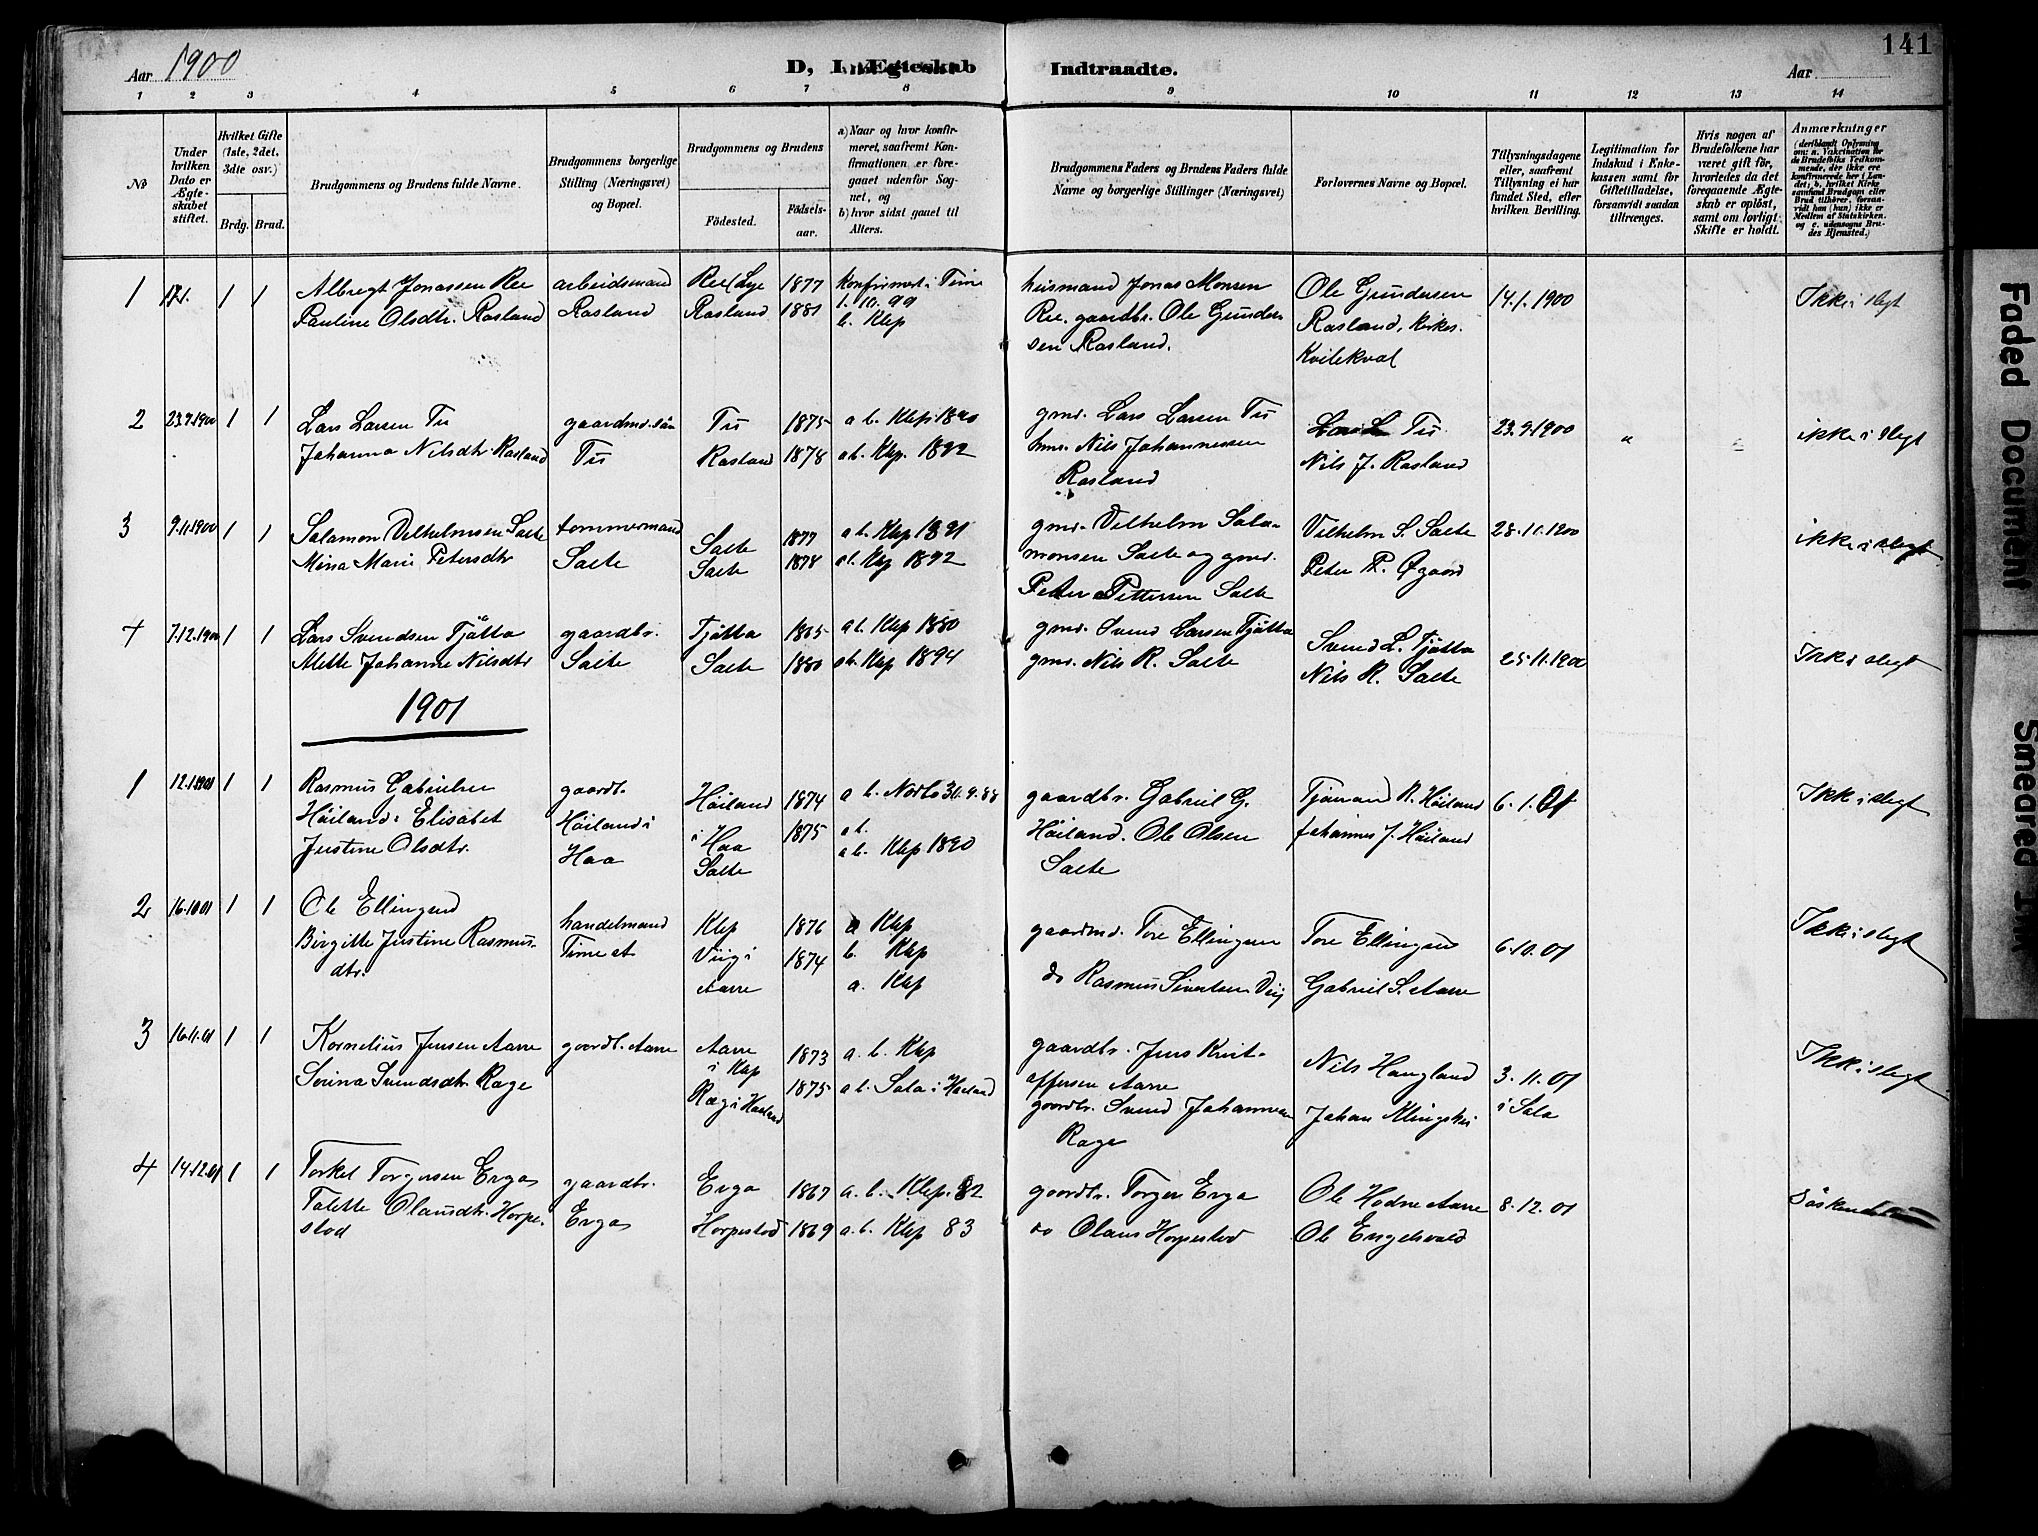 141
Aar 1900
D, I Ægteskab Indtraadte.
Aar
1 2 3 4 5 6 7 8 9 10 11 12 13 14
№
Under hvilken Dato er Ægteskabet stiftet.
Hvilket Gifte (1ste, 2det, 3die osv.)
Brdg. Brud.
Brudgommens og Brudens fulde Navne.
Brudgommens borgerlige Stilling (Næringsvei) og Bopæl.
Brudgommens og Brudens
Fødested.
Fødselsaar.
a) Naar og hvor konfirmeret, saafremt Konfirmationen er foregaaet udenfor Sognet, og
b) hvor sidst gaaet til Alters.
Brudgommens Faders og Brudens Faders fulde Navne og borgerlige Stillinger (Næringsvei)
Forlovernes Navne og Bopæl.
Tillysningsdagene eller, saafremt Tillysning ei har fundet Sted, efter hvilken Bevilling.
Legitimation for Indskud i Enkekassen samt for Giftetilladelse, forsaavidt saadan tiltrænges.
Hvis nogen af Brudefolkene har været gift før, hvorledes da det foregaaende Ægteskab er opløst, samt om lovligt Skifte er holdt.
Anmærkninger
(deriblandt Oplysning om: a. Vakcination for de Brudefolks Vedkommende, der ikke ere konfirmerede her i Landet; b. hvilket Kirkesamfund Brudgom eller Brud tilhører, forsaavidt han (hun) ikke er Medlem af Statskirken. og c. udensogns Brudes Hjemsted.)
1 1 1 Albregt Jonassen Ree arbeidsmand Ree Lye 1877 konfirmet i Time husmand Jonas Monsen Ole Gundersen 14.1.1900 Ikke i slegt
Pauline Olsdtr. Rosland Rosland Rosland 1881 1.10.99 Ree. gaardbr. Ole Gunder- Rosland, Kirkes.
b. Klep sen Rosland. Kvilekval
2 23.9.1900 1 1 Lars Larsen Tu gaardmd. søn Tu 1875 a b. Klep 1890 gmd. Lars Larsen Tu Tu 23.9.1900 " ikke i slegt
Johanna Nilsdtr. Rosland Tu Rosland 1878 a b. Klep. 1892 hmd. Nils Johannessen Nils J. Rosland
Rosland
3 9.11.1900 1 1 Salamon Vilhelmsen Salte tømmermand Salte 1877 a b. Klep 1891 gmd. Vilhelm Sala- Vilhelm S. Salte 28.10.1900 ikke i slegt
Mina Marie Petersdtr Salte Salte 1878 a b. Klep 1892 monsen Salte og gmd. Peter P. Øgaard
Peder Pettersen Salte
4 7.12.1900 1 1 Lars Svendsen Tjøtta gaardbr. Tjøtta 1865 a b. Klep 1880 gmd. Svend Larsen Tjøtta Svend L. Tjøtta 25.11.1900 Ikke i slegt
Mette Johanne Nilsdtr Salte Salte 1880 a b. Klep 1894 gmd. Nils R. Salte Nils R. Salte
1901
1 12.1.1901 1 1 Rasmus Gabrielsen gaardb. Høiland 1874 a b. Nærbø 30.9.88 gaardbr. Gabriel G. Tjøran R. Høiland 6.1.01 Ikke i slegt
Høiland. Elisabet Høiland i i Haa 1875 a b. Høiland. Ole Olsen Johannes J. Høiland
Justine Olsdtr. Haa Salte a b. Klep 1890 Salte
2 16.10.01 1 1 Ole Ellingsen handelmand Klep 1876 a Klep gaardmd. Tore Ellingsen Tore Ellingsen 6.10.01 Ikke i slegt
Birgitte Justine Rasmus- Time st Viig i 1874 b. Klep do Rasmus Sivertsen Viig Gabriel S. Aarre
dtr. Aarre a. Klep
3 16.11.01 1 1 Kornelius Jensen Aarre gaardb. Aarre Aarre 1873 a. b. Klep gaardbr. Jens Krist- Nils Haugland 3.11.01 Ikke i slegt
Serina Svendsdtr. Rage i Klep 1875 a b. Sola i Haaland offersen Aarre Johan i Sola
Ræg i Haaland gaardbr. Svend Johannesen
Rage
4 14.12.01 1 1 Torkel Torgersen Erga gaardbr. Erga 1867 a. b. Klep. 82 gaardbr. Torger Erga Ole Hodne Aarre 8.12.01 Søskende
Talette Olausdtr. Horpe- Erga Horpestad 1869 a. b. Klep 83 do Olaus Horpestad Ole Engelsvold
stad
Faded Document
Smeared Ink